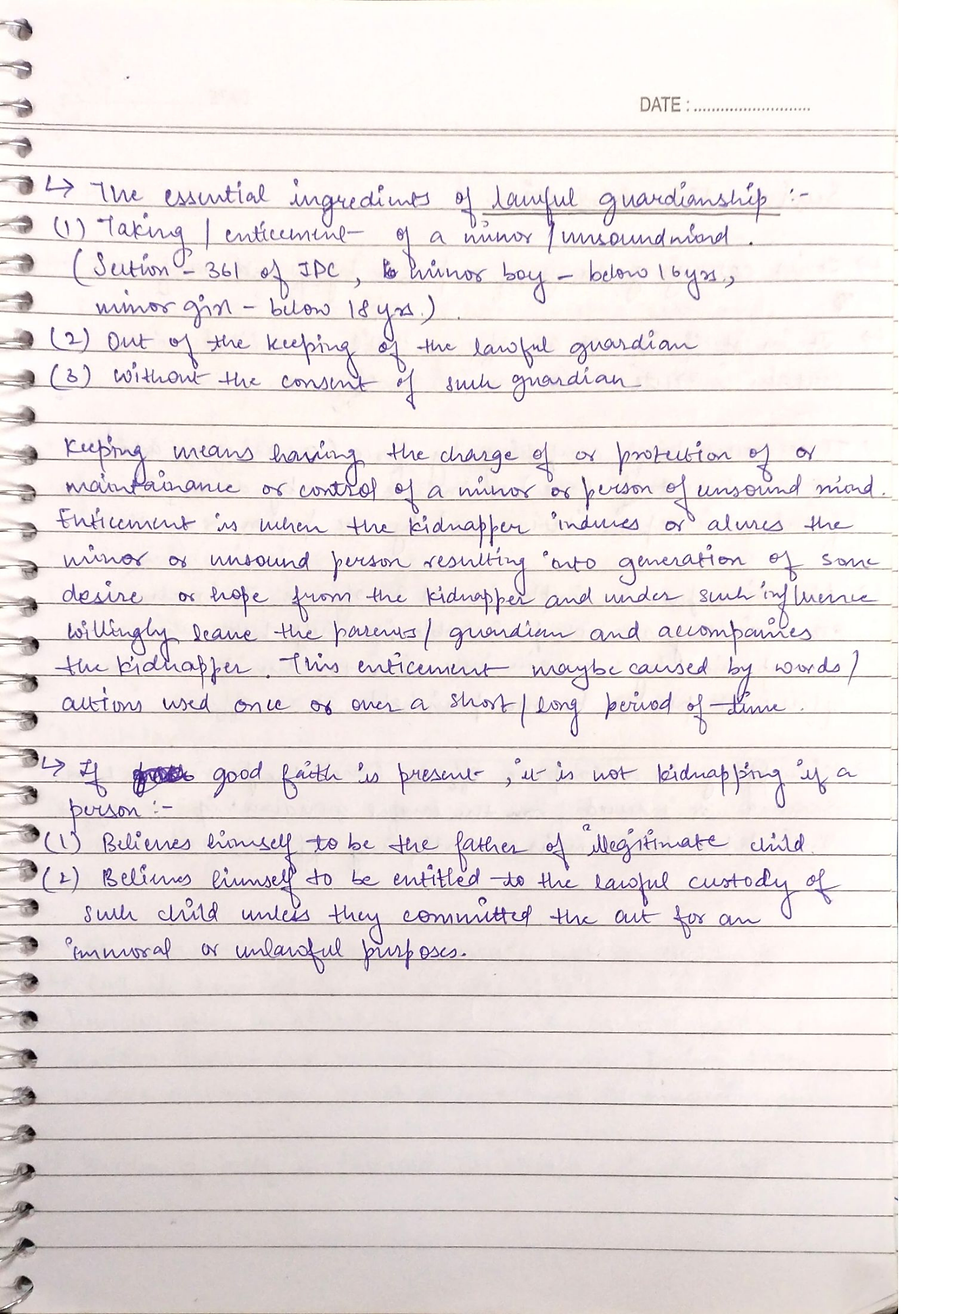 DATE : ............................
↳ The essential ingredients of lawful guardianship :-
(1) Taking / enticement of a minor / unsoundmind .
(Section - 361 of IPC, minor boy - below 16yrs.,
minor girl - below 18 yrs.)
(2) Out of the keeping of the lawful guardian
(3) without the consent of such guardian.
Keeping means having the charge of or protection of or
maintainance or control of a minor or person of unsound mind.
Enticement is when the kidnapper induces or alures the
minor or unsound person resulting into generation of some
desire or hope from the kidnapper and under such influence
willingly leave the parents / guardian and accompanies
the kidnapper. This enticement maybe caused by words /
actions used once or over a short / long period of time .
↳ If good faith is present, it is not kidnapping if a
person :-
(1) Believes himself to be the father of illegitimate child.
(2) Believes himself to be entitled to the lawful custody of
such child unless they committed the act for an
immoral or unlawful purposes.